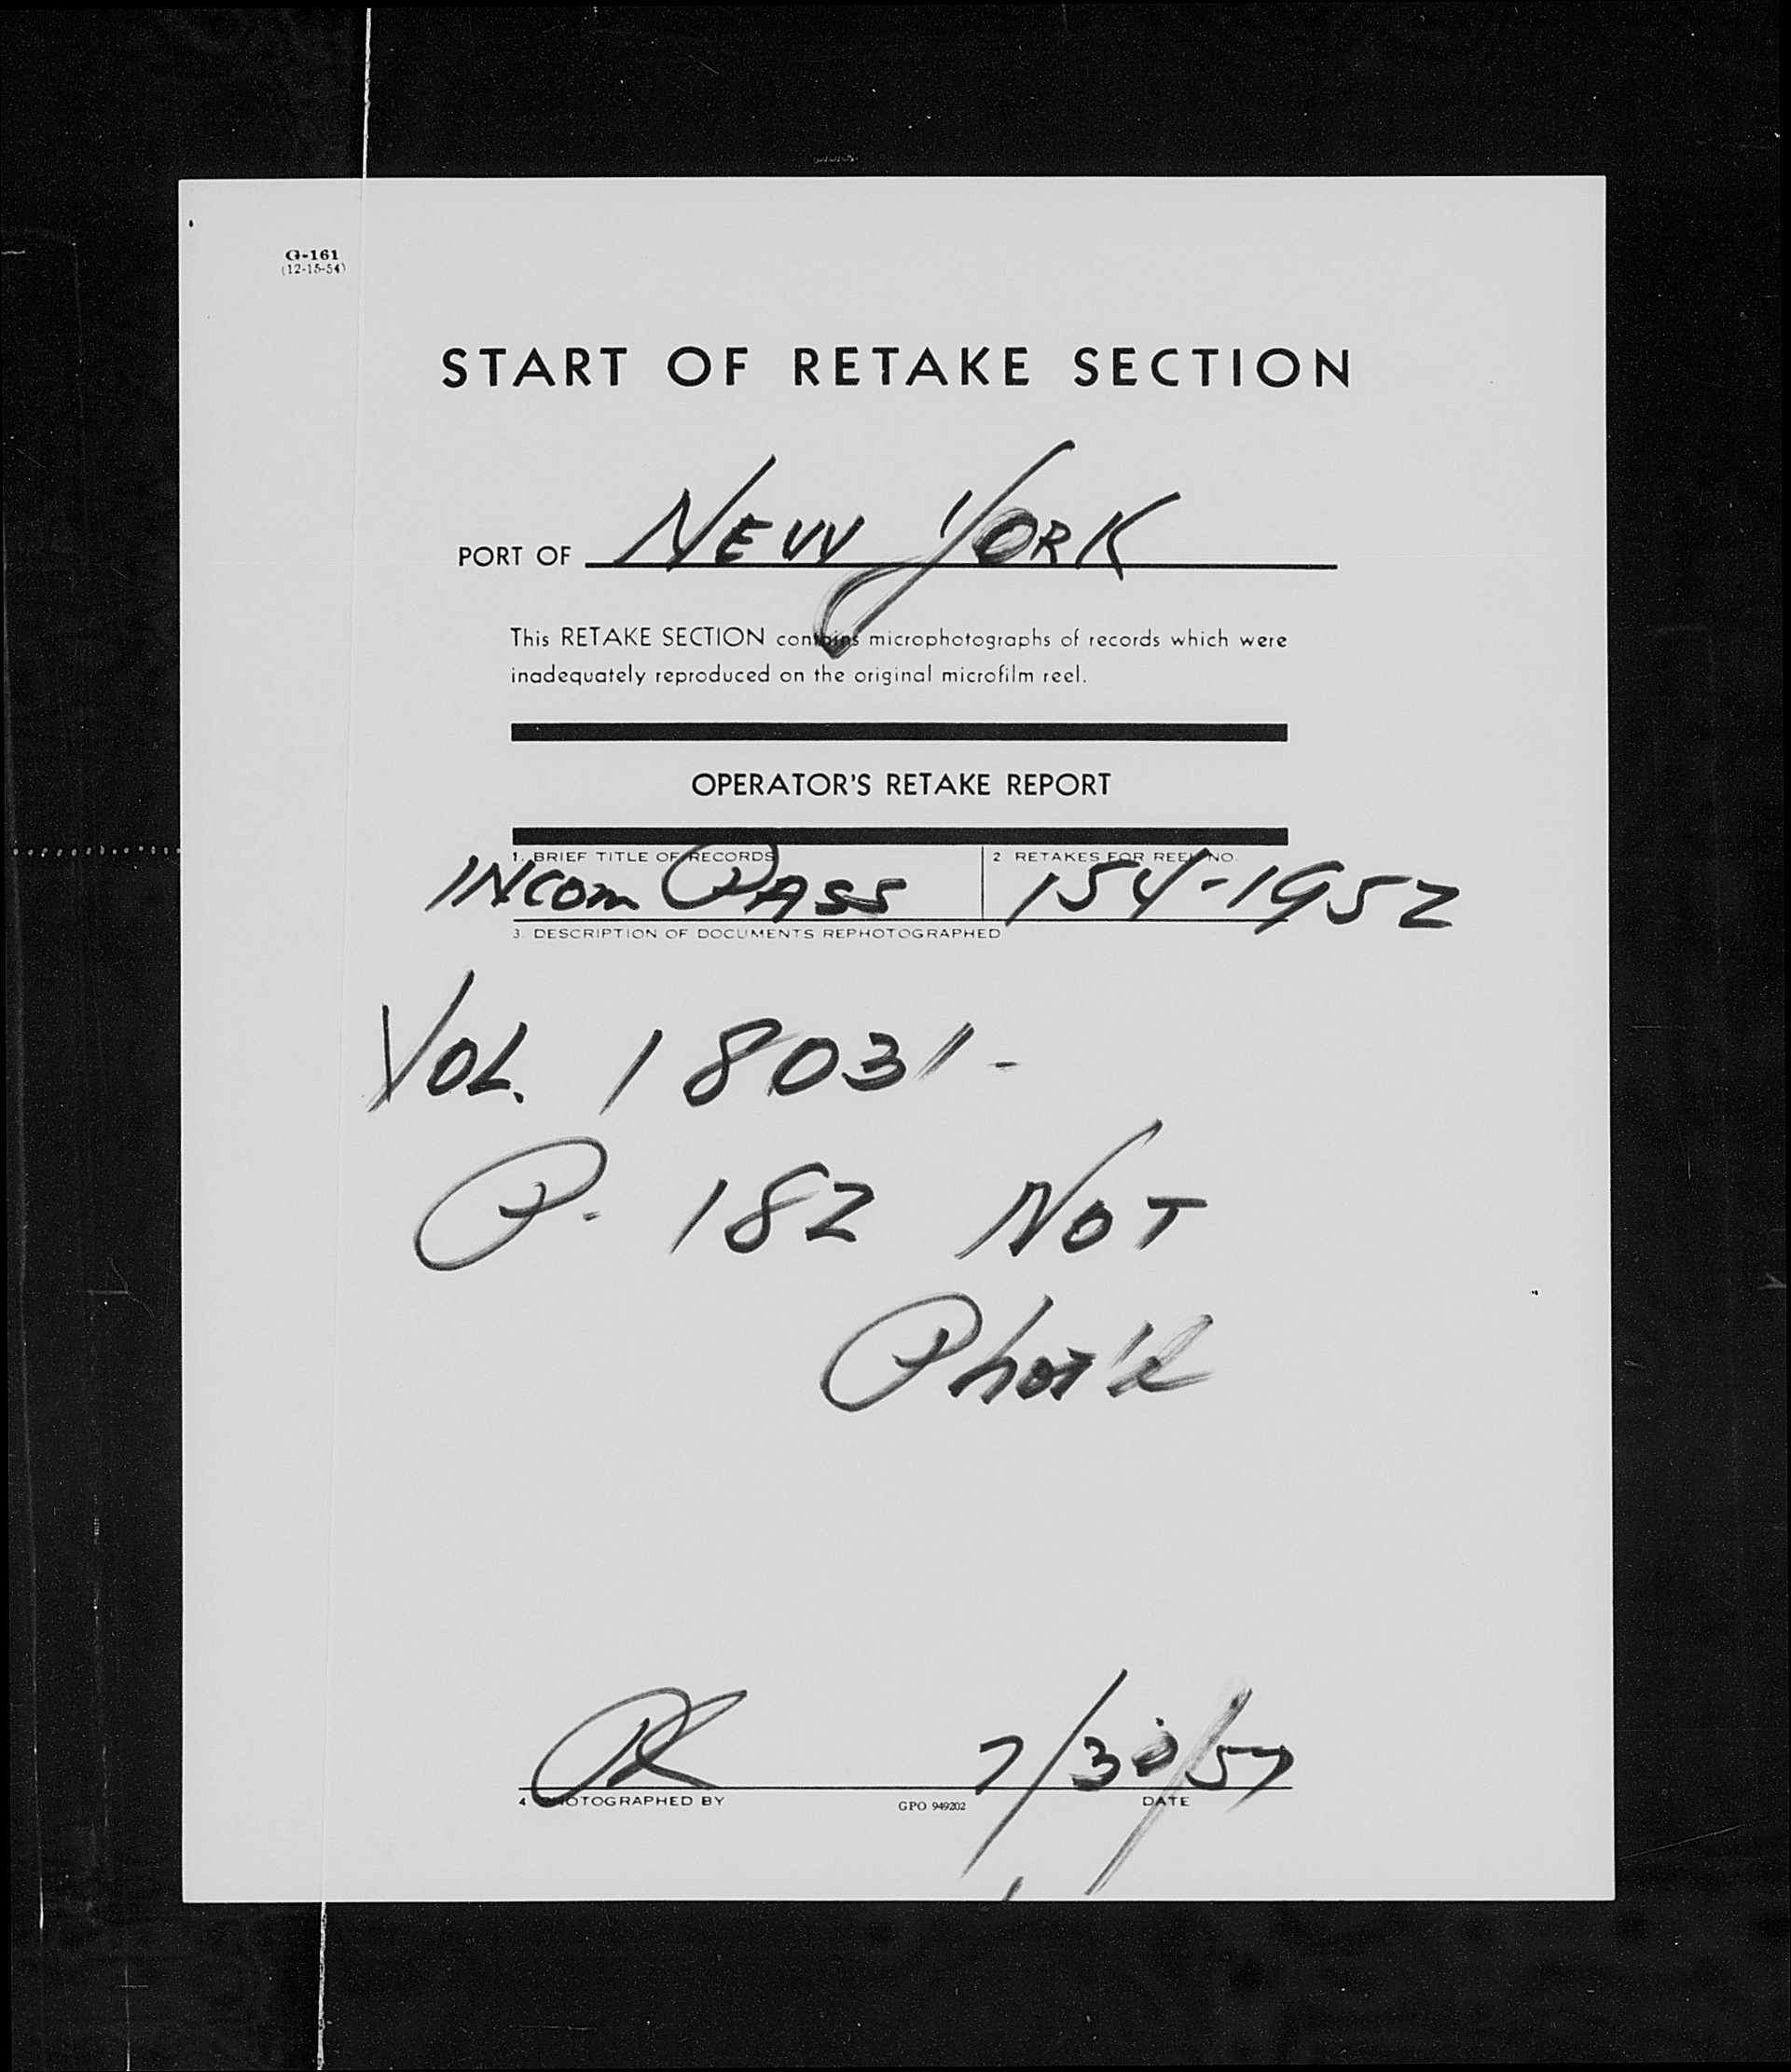 G-161
(12-15-54)
START OF RETAKE SECTION
PORT OF NEW YORK
This RETAKE SECTION contains microphotographs of records which were
inadequately reproduced on the original microfilm reel.
OPERATOR'S RETAKE REPORT
1. BRIEF TITLE OF RECORDS 2 RETAKES FOR REEL NO.
INCOM PASS 154-1952
3. DESCRIPTION OF DOCUMENTS REPHOTOGRAPHED
VOL. 18031-
P. 182 NOT
Phot'd
7/30/57
4 PHOTOGRAPHED BY GPO 949202 DATE